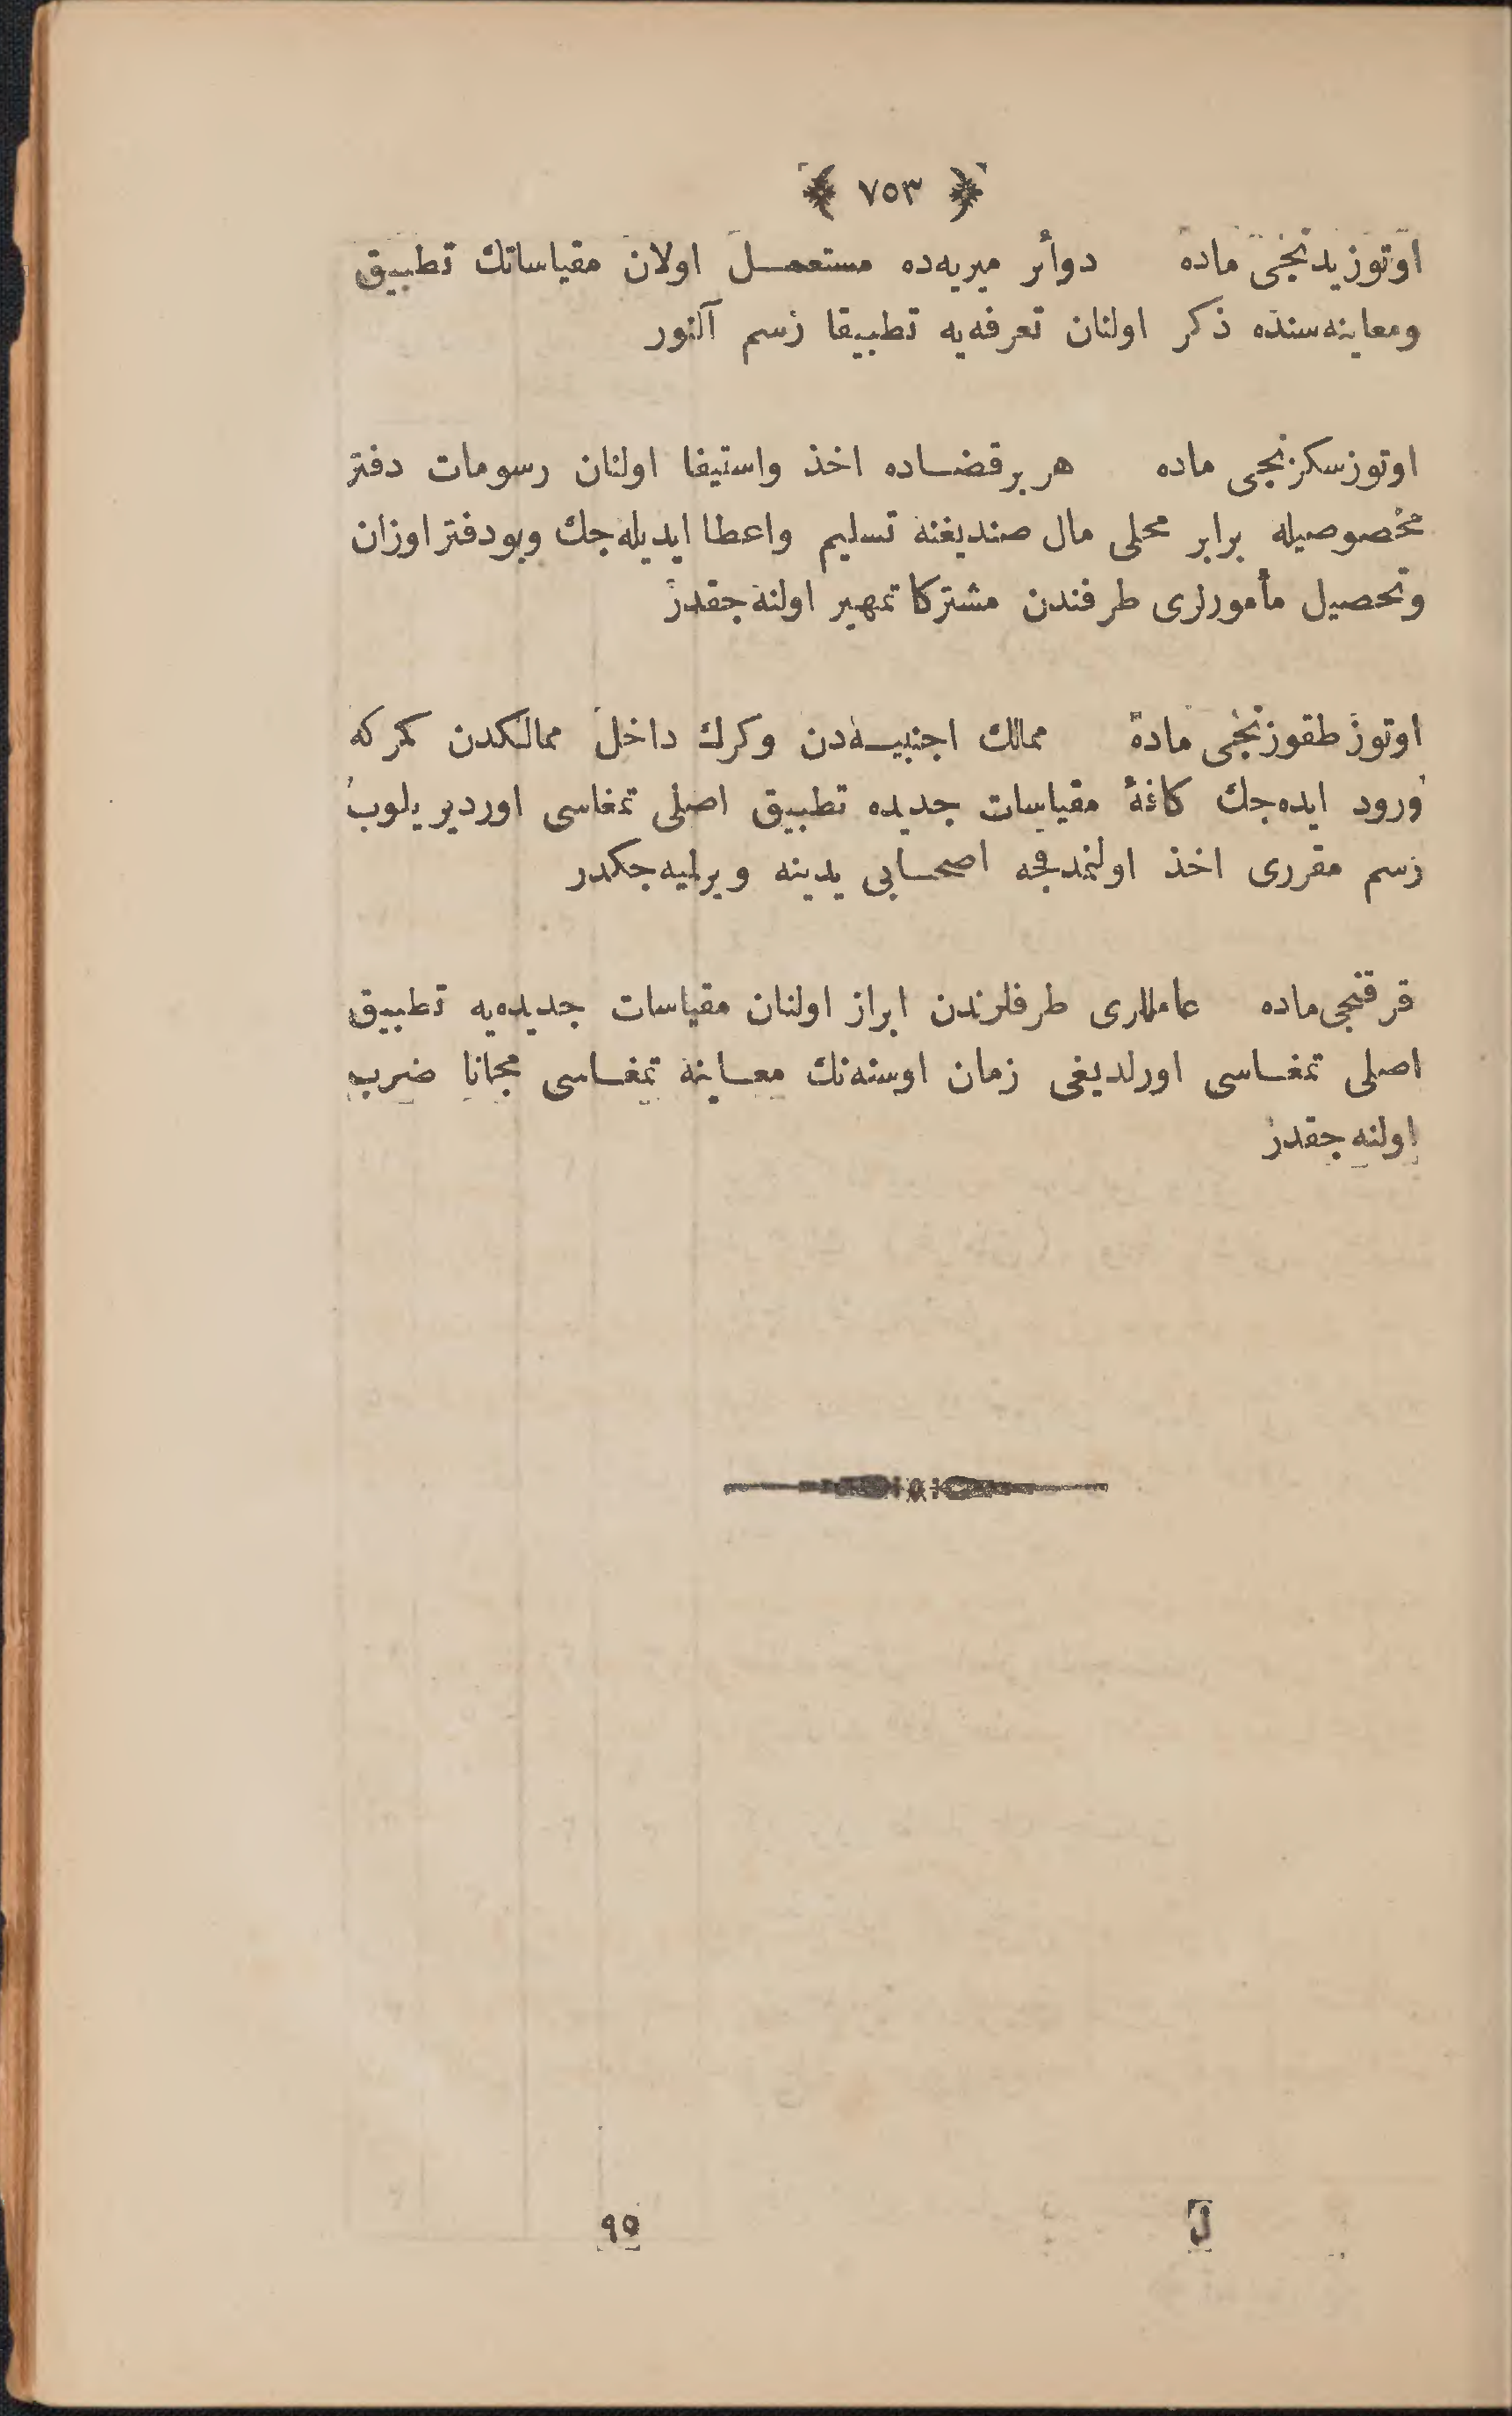 ﴿ ٧٥٣ ﴾
اوتوز يدنجى ماده دوائر ميريه‌ده مستعمل اولان مقياساتك تطبيق
ومعاينه‌سنده ذكر اولنان تعرفه‌يه تطبيقا رسم آلنور
اوتوزسكزنجى ماده هر برقضاده اخذ واستيفا اولنان رسومات دفتر
مخصوصيله برابر محلى مال صنديغنه تسليم واعطا ايديله‌جك وبودفتر اوزان
وتحصيل مأمورلرى طرفندن مشتركا تمهير اولنه‌جقدر
اوتوز طقوزنجى ماده ممالك اجنبيه‌دن وكرك داخل ممالكدن كمركه
ورود ايده‌جك كافهٔ مقياسات جديده تطبيق اصلى تمغاسى اورديريلوب
رسم مقررى اخذ اولنمدقجه اصحابى يدينه ويرلميه‌جكدر
قرقنجى ماده عاملرى طرفلرندن ابراز اولنان مقياسات جديده‌يه تطبيق
اصلى تمغاسى اورلديغى زمان اوسنه‌نك معاينه تمغاسى مجانا ضرب
اولنه‌جقدر
ل ٩٥